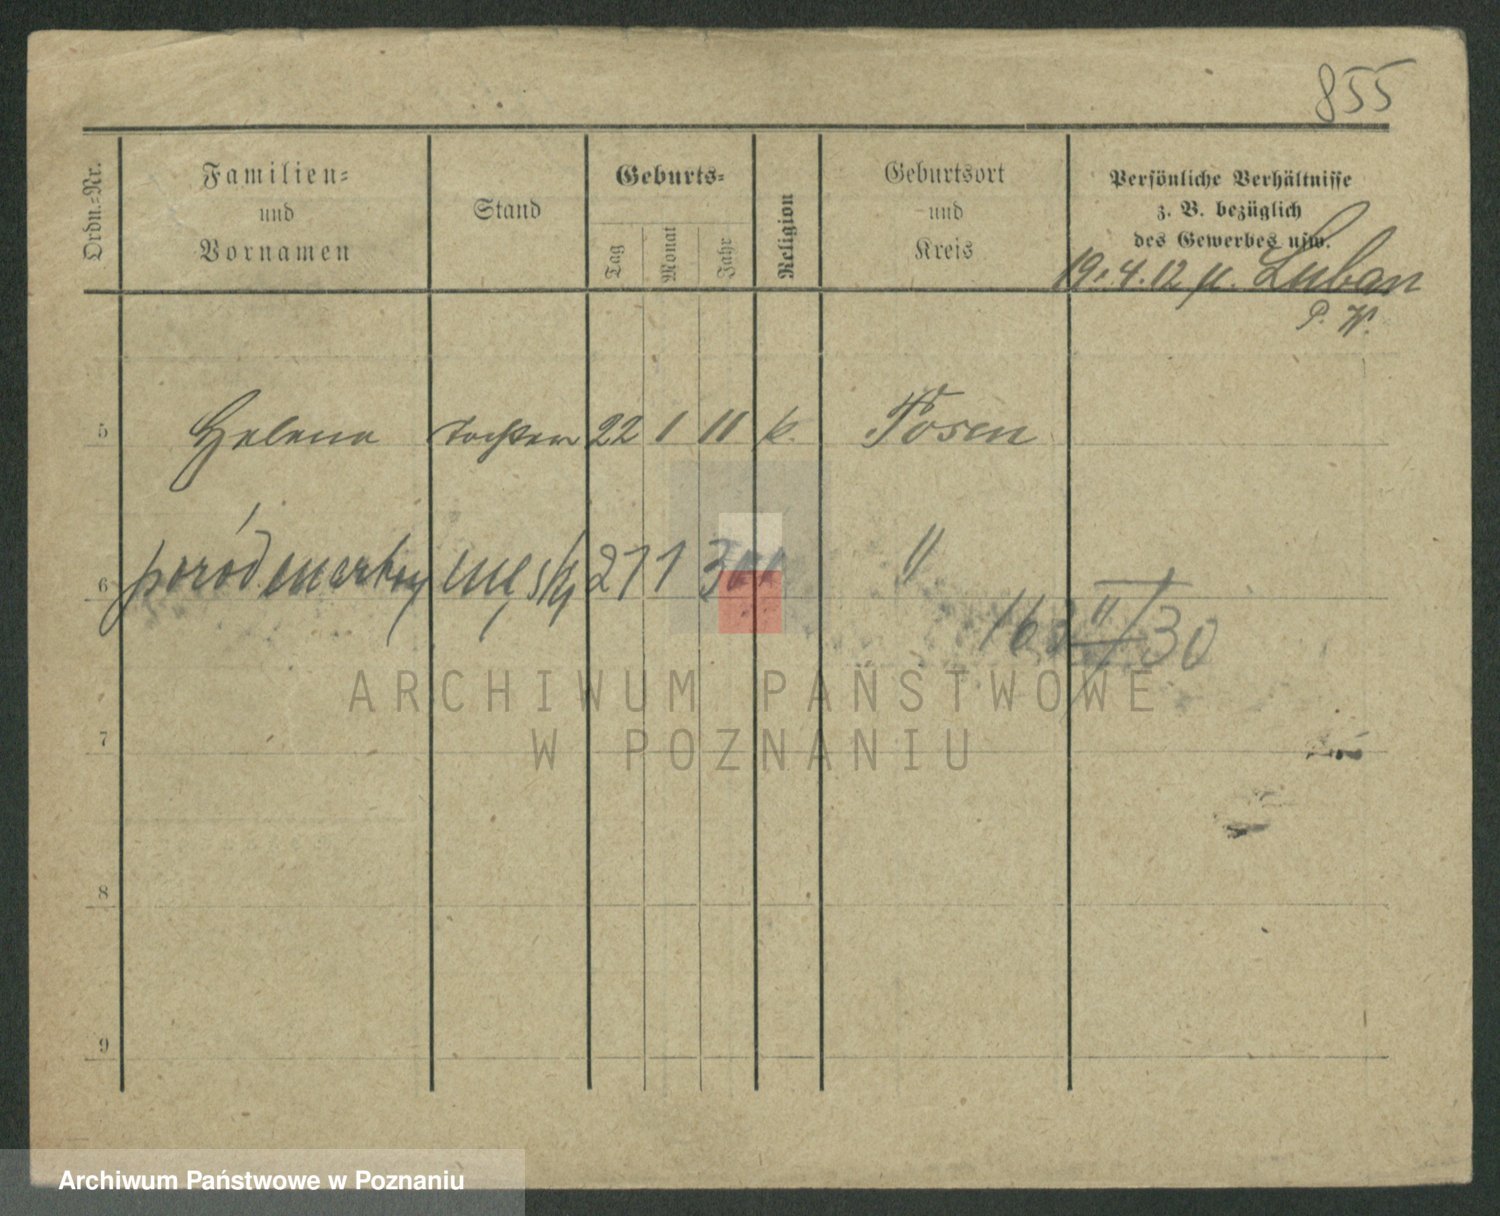 855
Ordn.-Nr.
Familien-
und
Vornamen
Stand
Geburts-
Tag
Monat
Jahr
Religion
Geburtsort
und
Kreis
Persönliche Verhältnisse
z. B. bezüglich
des Gewerbes usw.
19. 4. 12 n. Luban
P. W.
5 Helena Tochter 22 1 11 k. Posen
6 poród martwy męski 27 1 30 "
163 II/30
7
8
9
ARCHIWUM PAŃSTWOWE
W POZNANIU
Archiwum Państwowe w Poznaniu